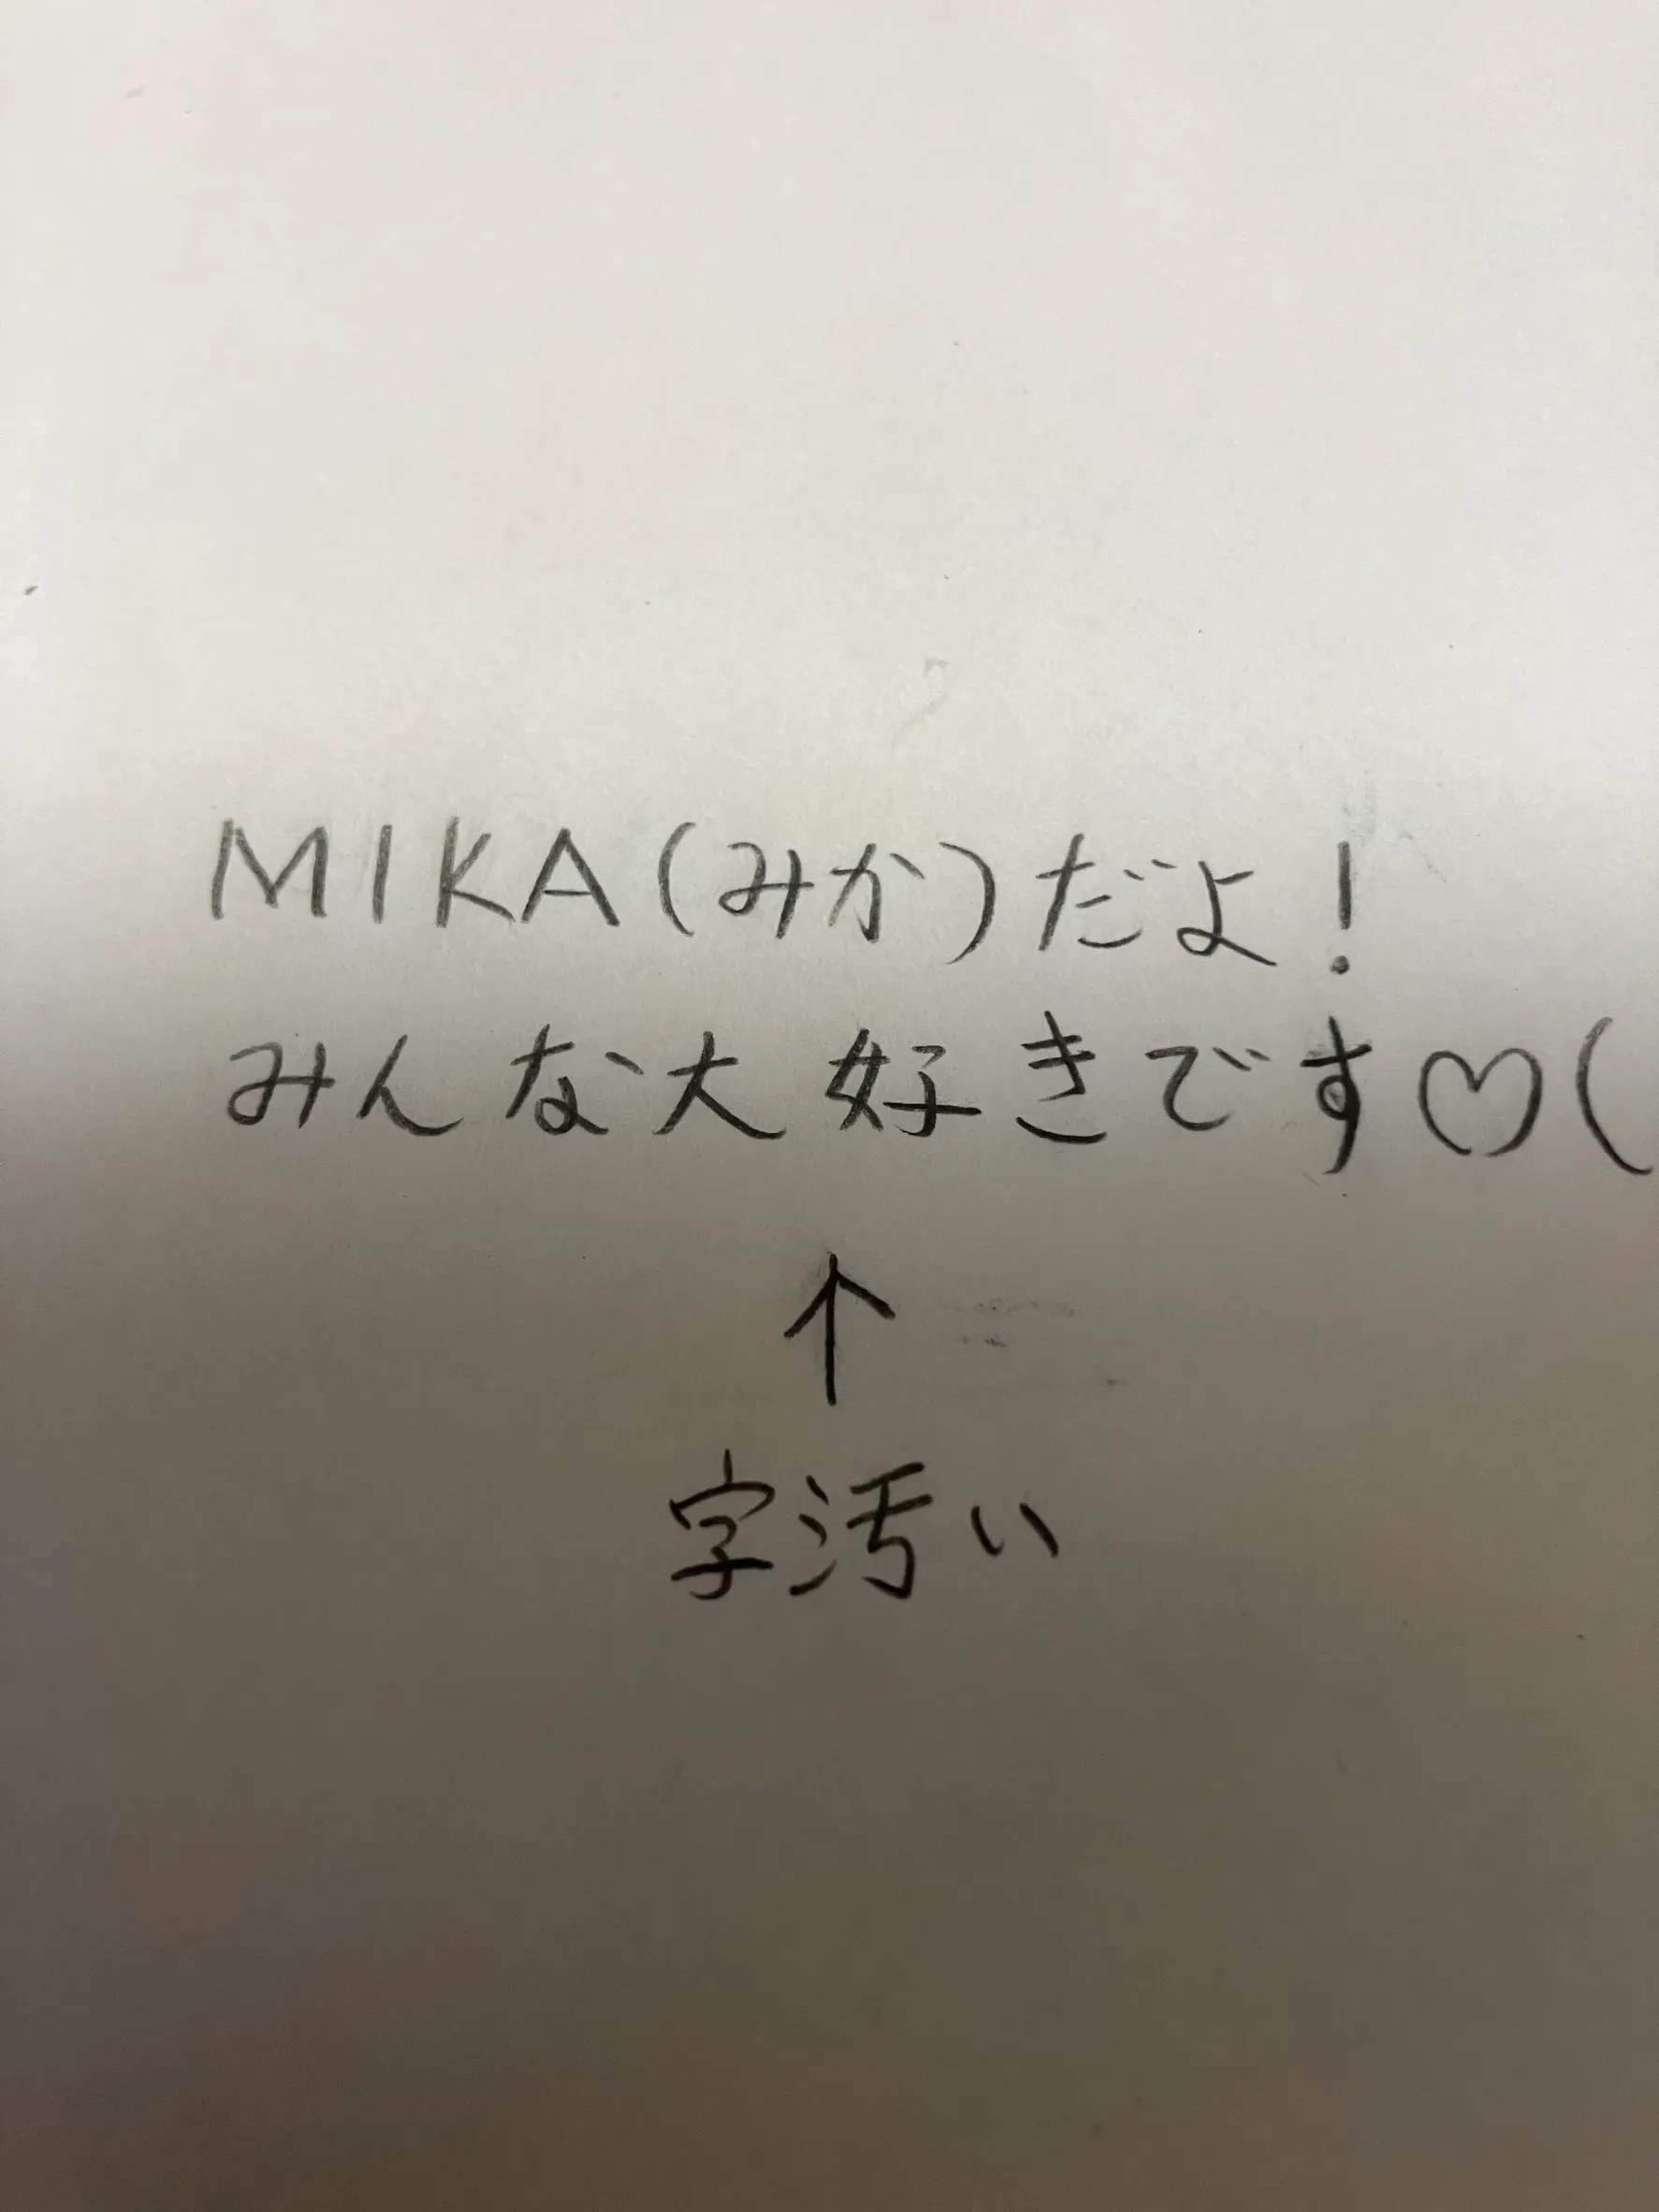 MIKA(みか)だよ!
みんな大好きです♡(
↑
字汚い